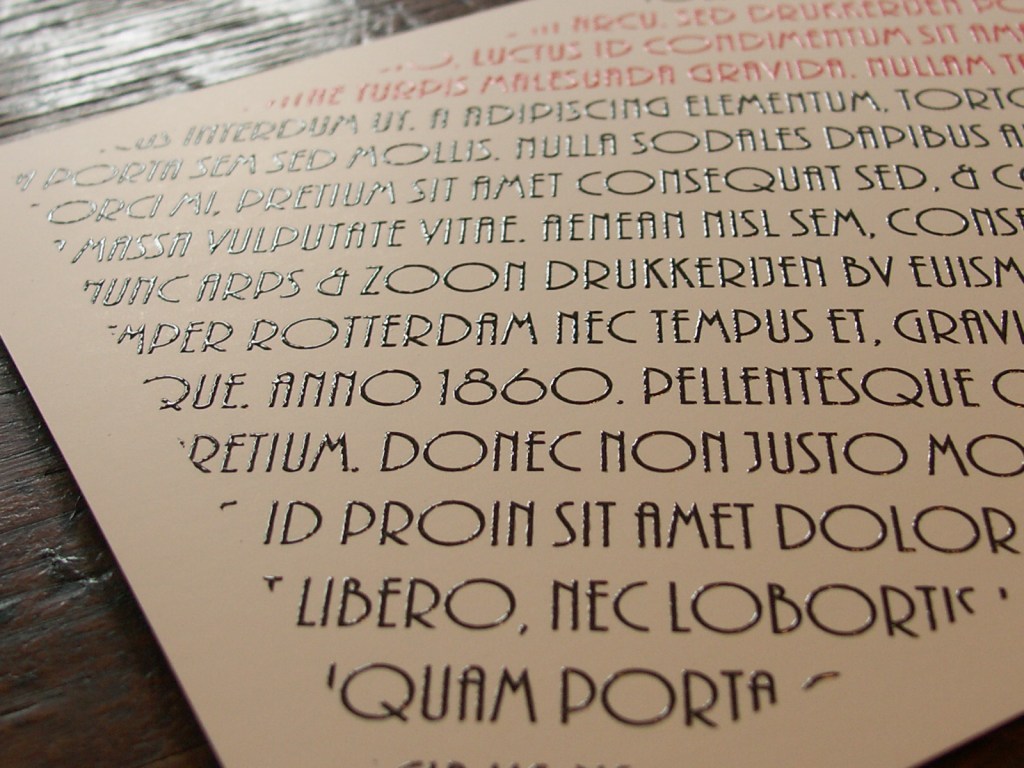 ARCU. SED DRUKKERIJEN
LUCTUS ID CONDIMENTUM SIT AM
TURPIS MALESUADA GRAVIDA. NULLAM
INTERDUM UT. A ADIPISCING ELEMENTUM. TORTO
PORTA SEM SED MOLLIS. NULLA SODALES DAPIBUS A
ORCI MI, PRETIUM SIT AMET CONSEQUAT SED, & CO
MASSA VULPUTATE VITAE. AENEAN NISL SEM, CONSE
NUNC ARPS & ZOON DRUKKERIJEN BV EUISM
MPER ROTTERDAM NEC TEMPUS ET, GRAVI
QUE. ANNO 1860. PELLENTESQUE
RETIUM. DONEC NON JUSTO MO
ID PROIN SIT AMET DOLOR
LIBERO, NEC LOBORTI
QUAM PORTA